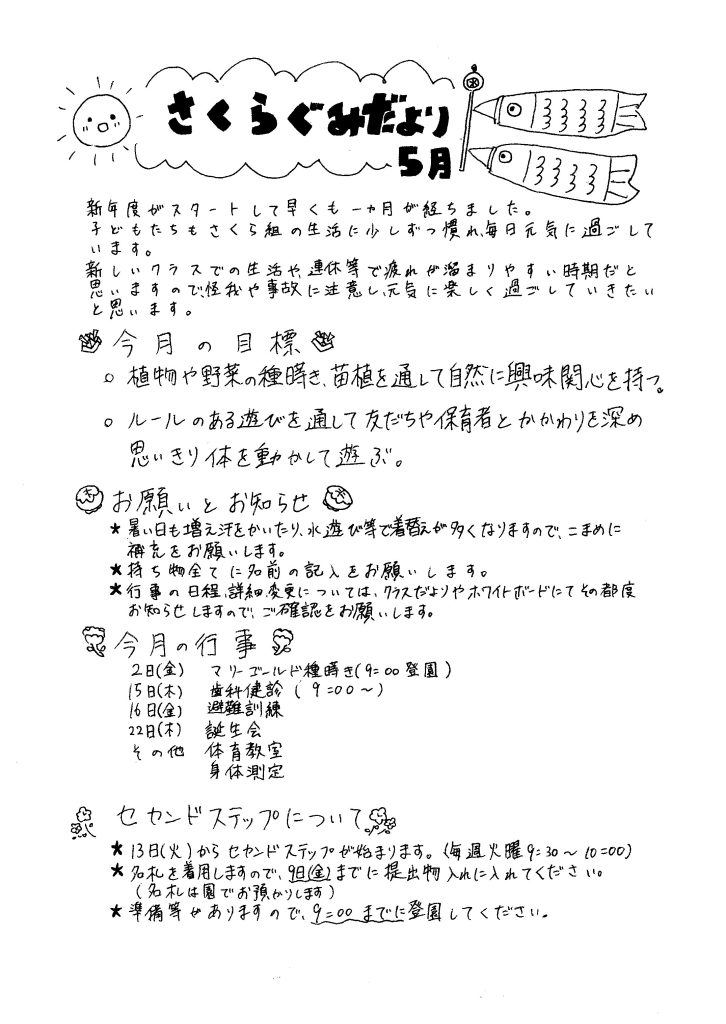 さくらぐみだより
5月
新年度がスタートして早くも一ヵ月が経ちました。
子どもたちもさくら組の生活に少しずつ慣れ、毎日元気に過ごして
います。
新しいクラスでの生活や、連休等で疲れが溜まりやすい時期だと
思いますので、怪我や事故に注意し、元気に楽しく過ごしていきたい
と思います。
今月の目標
○ 植物や野菜の種蒔き、苗植を通して自然に興味関心を持つ。
○ ルールのある遊びを通して友だちや保育者とかかわりを深め
思いきり体を動かして遊ぶ。
お願いとお知らせ
★暑い日も増え汗をかいたり、水遊び等で着替えが多くなりますので、こまめに
補充をお願いします。
★持ち物全てに名前の記入をお願いします。
★行事の日程、詳細、変更については、クラスだよりやホワイトボードにてその都度
お知らせしますので、ご確認をお願いします。
今月の行事
2日(金) マリーゴールド種蒔き(9:00登園)
15日(木) 歯科健診(9:00~)
16日(金) 避難訓練
22日(木) 誕生会
その他 体育教室
身体測定
セカンドステップについて
★13日(火)からセカンドステップが始まります。(毎週火曜9:30~10:00)
★名札を着用しますので、9日(金)までに提出物入れに入れてください。
(名札は園でお預かりします)
★準備等がありますので、9:00までに登園してください。